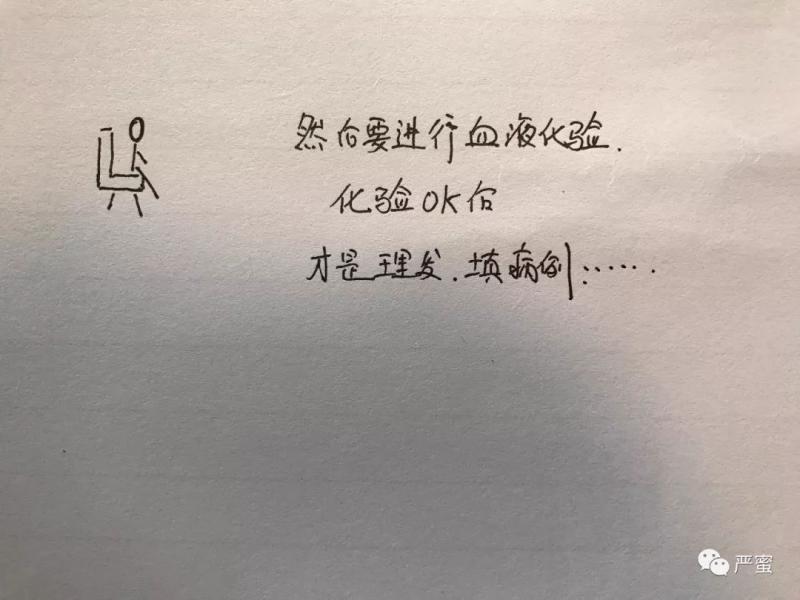 然后要进行血液化验.
化验OK后
才是理发.填病例......
严蜜